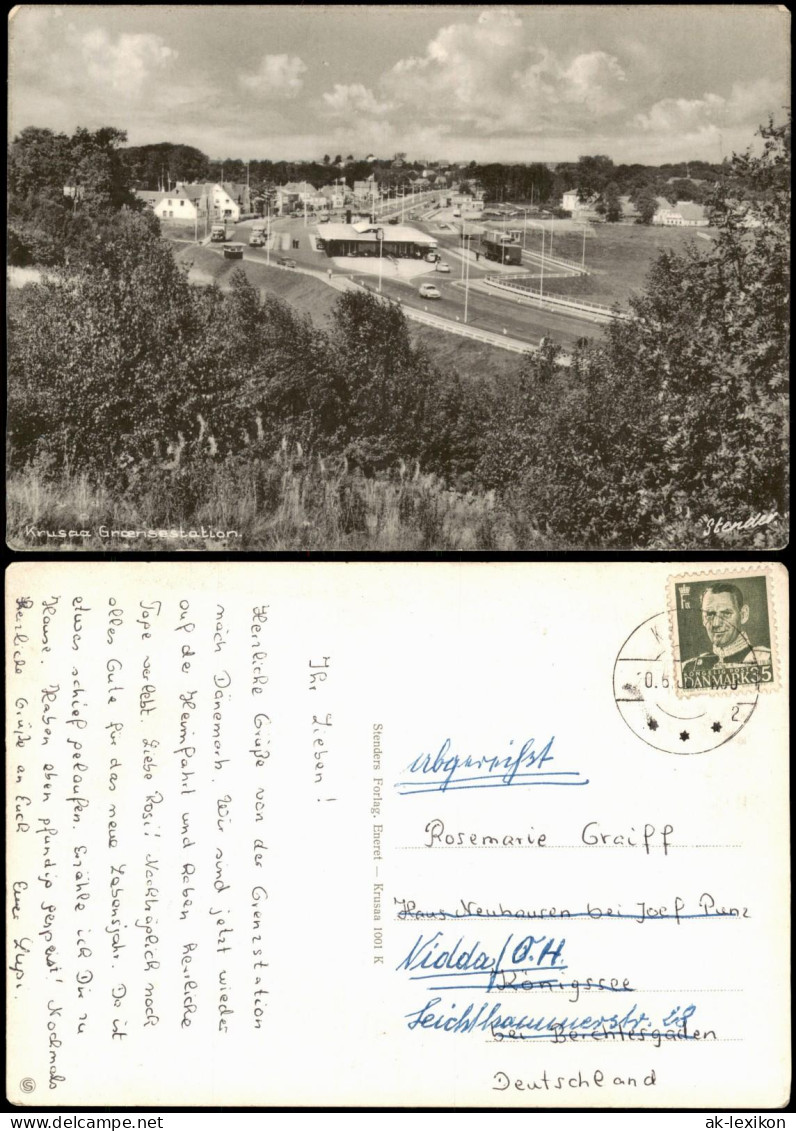 Krusaa Grænsestation.
Stender.
Ihr Lieben!
Herzliche Grüße von der Grenzstation
nach Dänemark. Wir sind jetzt wieder
auf der Heimfahrt und haben herrliche
Tage verlebt. Liebe Rosi! Nachträglich noch
alles Gute für das neue Lebensjahr. Da ist
etwas schief gelaufen. Erzähle ich Dir zu
Hause. Haben eben pfundig gespeist! Nochmals
Herzliche Grüße an Euch Eure
Stenders Forlag. Eneret — Krusaa 1001 K
DANMARK 35
2
abgereist
Rosemarie Graiff
Haus Neuhausen bei Josef Punz
Nidda/O.H.
Königssee
Leichthammerstr. 28
bei Berchtesgaden
Deutschland
ak-lexikon ak-lexikon.com